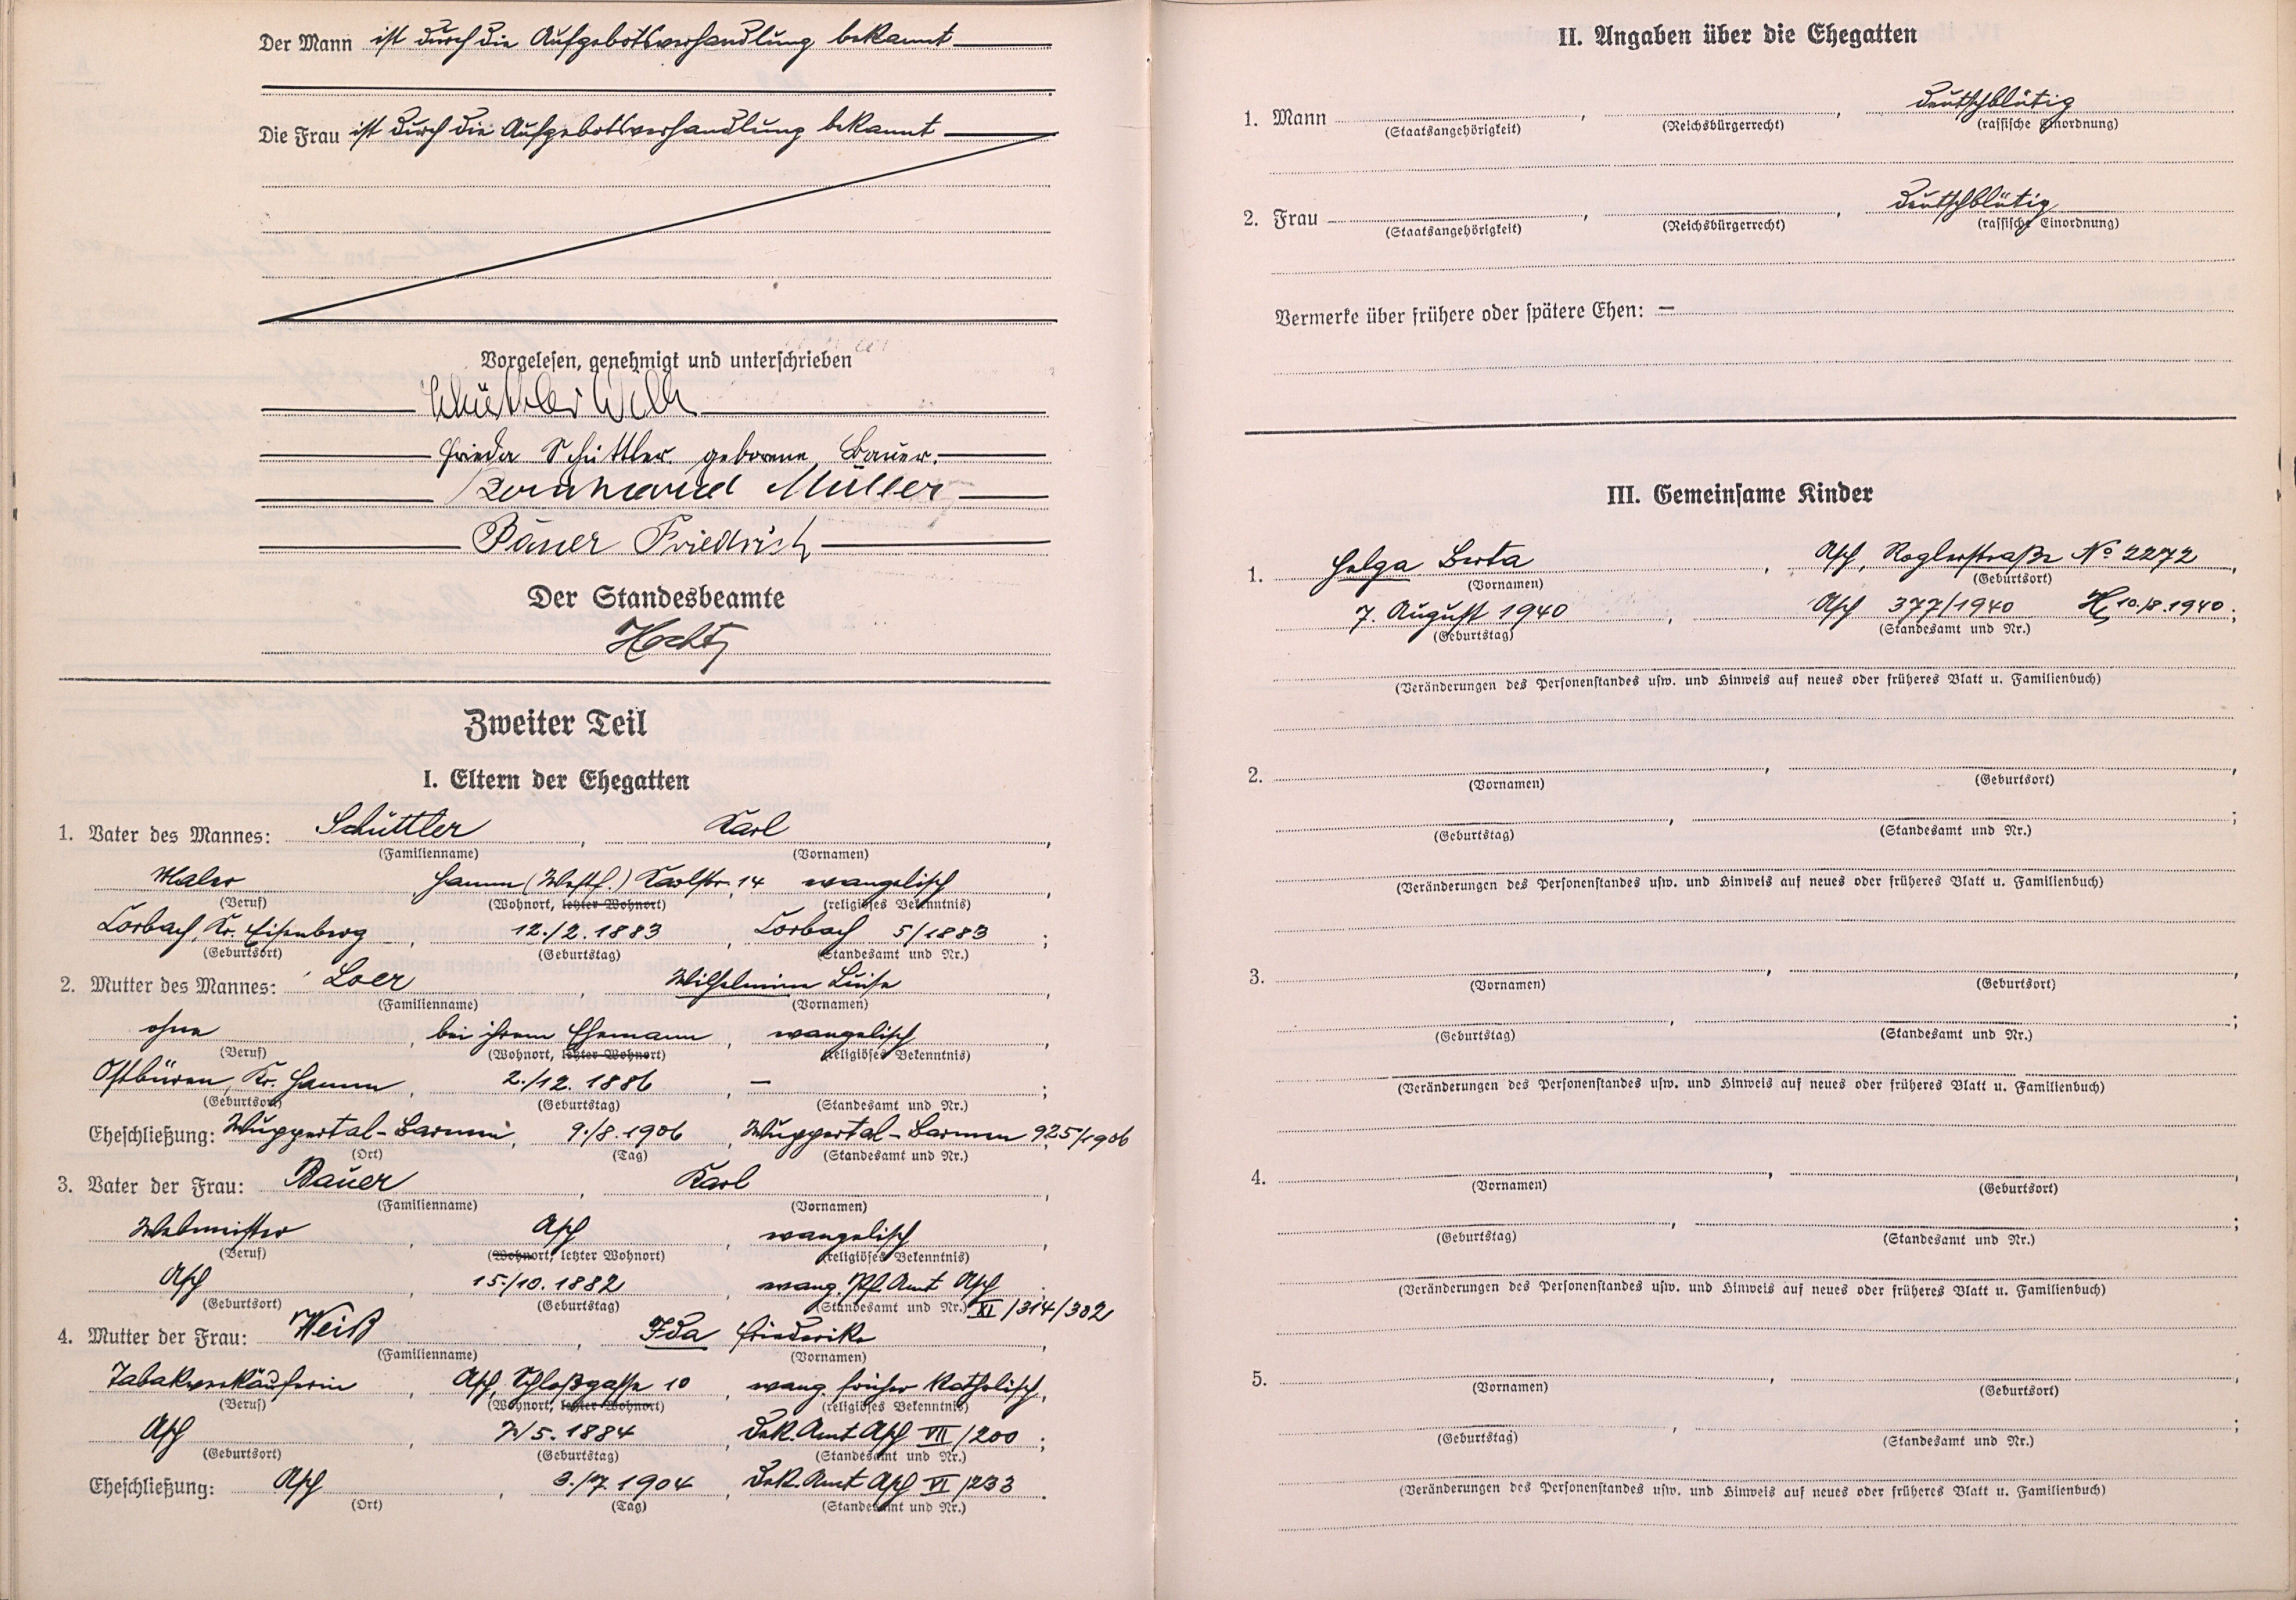 Der Mann ist durch die Aufgebotsverhandlung bekannt
Die Frau ist durch die Aufgebotsverhandlung bekannt
Vorgelesen, genehmigt und unterschrieben
Schüttler Willi
Frieda Schüttler geborene Bauer.
Bernhard Müller
Bauer Friedrich
Der Standesbeamte
Zweiter Teil
I. Eltern der Ehegatten
1. Vater des Mannes: Schüttler, Karl,
(Familienname) (Vornamen)
Maler Hamm (Westf.) Karlstr. 14 evangelisch,
(Beruf) (Wohnort, letzter Wohnort) (religiöses Bekenntnis)
Corbach, Kr. Eisenberg, 12./2. 1883, Corbach 5/1883;
(Geburtsort) (Geburtstag) (Standesamt und Nr.)
2. Mutter des Mannes: Loer, Wilhelmine Luise,
(Familienname) (Vornamen)
ohne, bei ihrem Ehemann, evangelisch,
(Beruf) (Wohnort, letzter Wohnort) (religiöses Bekenntnis)
Ostbüren, Kr. Hamm, 2./12. 1886, —;
(Geburtsort) (Geburtstag) (Standesamt und Nr.)
Eheschließung: Wuppertal-Barmen, 9./8. 1906, Wuppertal-Barmen 925/1906
(Ort) (Tag) (Standesamt und Nr.)
3. Vater der Frau: Bauer, Karl,
(Familienname) (Vornamen)
Webmeister, Asch, evangelisch,
(Beruf) (Wohnort, letzter Wohnort) (religiöses Bekenntnis)
Asch, 15./10. 1882, evang. Pf. Amt Asch
(Geburtsort) (Geburtstag) (Standesamt und Nr.) XI/314/382
4. Mutter der Frau: Weiß, Ida Friederike,
(Familienname) (Vornamen)
Tabakverkäuferin, Asch, Schloßgasse 10, evang. früher katholisch,
(Beruf) (Wohnort, letzter Wohnort) (religiöses Bekenntnis)
Asch, 5. 1884, Dek. Amt Asch VII/200;
(Geburtsort) (Geburtstag) (Standesamt und Nr.)
Eheschließung: Asch, 3./7. 1904, Dek. Amt Asch VI/233.
(Ort) (Tag) (Standesamt und Nr.)
II. Angaben über die Ehegatten
1. Mann, , deutschblütig
(Staatsangehörigkeit) (Reichsbürgerrecht) (rassische Einordnung)
2. Frau, , deutschblütig
(Staatsangehörigkeit) (Reichsbürgerrecht) (rassische Einordnung)
Vermerke über frühere oder spätere Ehen: —
III. Gemeinsame Kinder
1. Helga Berta, Asch, Roglerstraße No 2272,
(Vornamen) (Geburtsort)
7. August 1940, Asch 377/1940 10./8. 1940;
(Geburtstag) (Standesamt und Nr.)
(Veränderungen des Personenstandes usw. und Hinweis auf neues oder früheres Blatt u. Familienbuch)
2. , ,
(Vornamen) (Geburtsort)
, ;
(Geburtstag) (Standesamt und Nr.)
(Veränderungen des Personenstandes usw. und Hinweis auf neues oder früheres Blatt u. Familienbuch)
3. , ,
(Vornamen) (Geburtsort)
, ;
(Geburtstag) (Standesamt und Nr.)
(Veränderungen des Personenstandes usw. und Hinweis auf neues oder früheres Blatt u. Familienbuch)
4. , ,
(Vornamen) (Geburtsort)
, ;
(Geburtstag) (Standesamt und Nr.)
(Veränderungen des Personenstandes usw. und Hinweis auf neues oder früheres Blatt u. Familienbuch)
5. , ,
(Vornamen) (Geburtsort)
, ;
(Geburtstag) (Standesamt und Nr.)
(Veränderungen des Personenstandes usw. und Hinweis auf neues oder früheres Blatt u. Familienbuch)